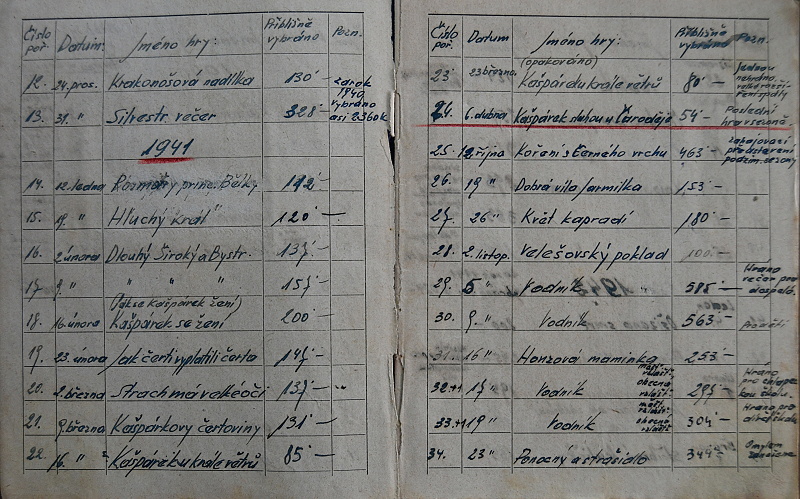 Číslo poř. Datum: Jméno hry: Přibližně vybráno Pozn.
12. 24. pros. Krakonošová nadílka 130·– za rok 1940 vybráno asi 2360 k
13. 31. " Silvestr. večer 328·–
1941
14. 12. ledna Rozmary princ. Bělky 112·–
15. 19. " Hluchý král " 120·–
16. 2. února Dlouhý Široký a Bystr. 137·–
17. 9. " " " " 157·–
18. 16. února (Jak se Kašpárek žení) Kašpárek se žení 200·–
19. 23. února Jak čerti vyplatili čerta 147·–
20. 2. března Strach má velké oči 137·– "
21. 9. března Kašpárkovy čertoviny 131·–
22. 16. " Kašpárek u krále větrů 85·–
Číslo poř. Datum Jméno hry: Přibližně vybráno Pozn.
23 23 března (opakováno) Kašpárek u krále větrů 80·–
24. 6. dubna Kašpárek sluhou u čaroděje 54·– Poslední hra v sezoně
25. 12. října Koření s Černého vrchu 463·– zahajovací představení podzim. sezony
26. 19 " Dobrá víla Jarmilka 153·–
27. 26 " Květ kapradí 180·–
28. 2. listop. Velešovský poklad 100·–
29. 5 " Vodník " 585·– Hráno večer pro dospělé.
30. 9. " Vodník 563·–
31. 16 " Honzova maminka 253·–
32 17 " Vodník obecná 297·– Hráno pro školu.
33 19 " Vodník obecná 304·– Hráno pro
34. 23 " Ponocný a strašidlo 344·– Omylem